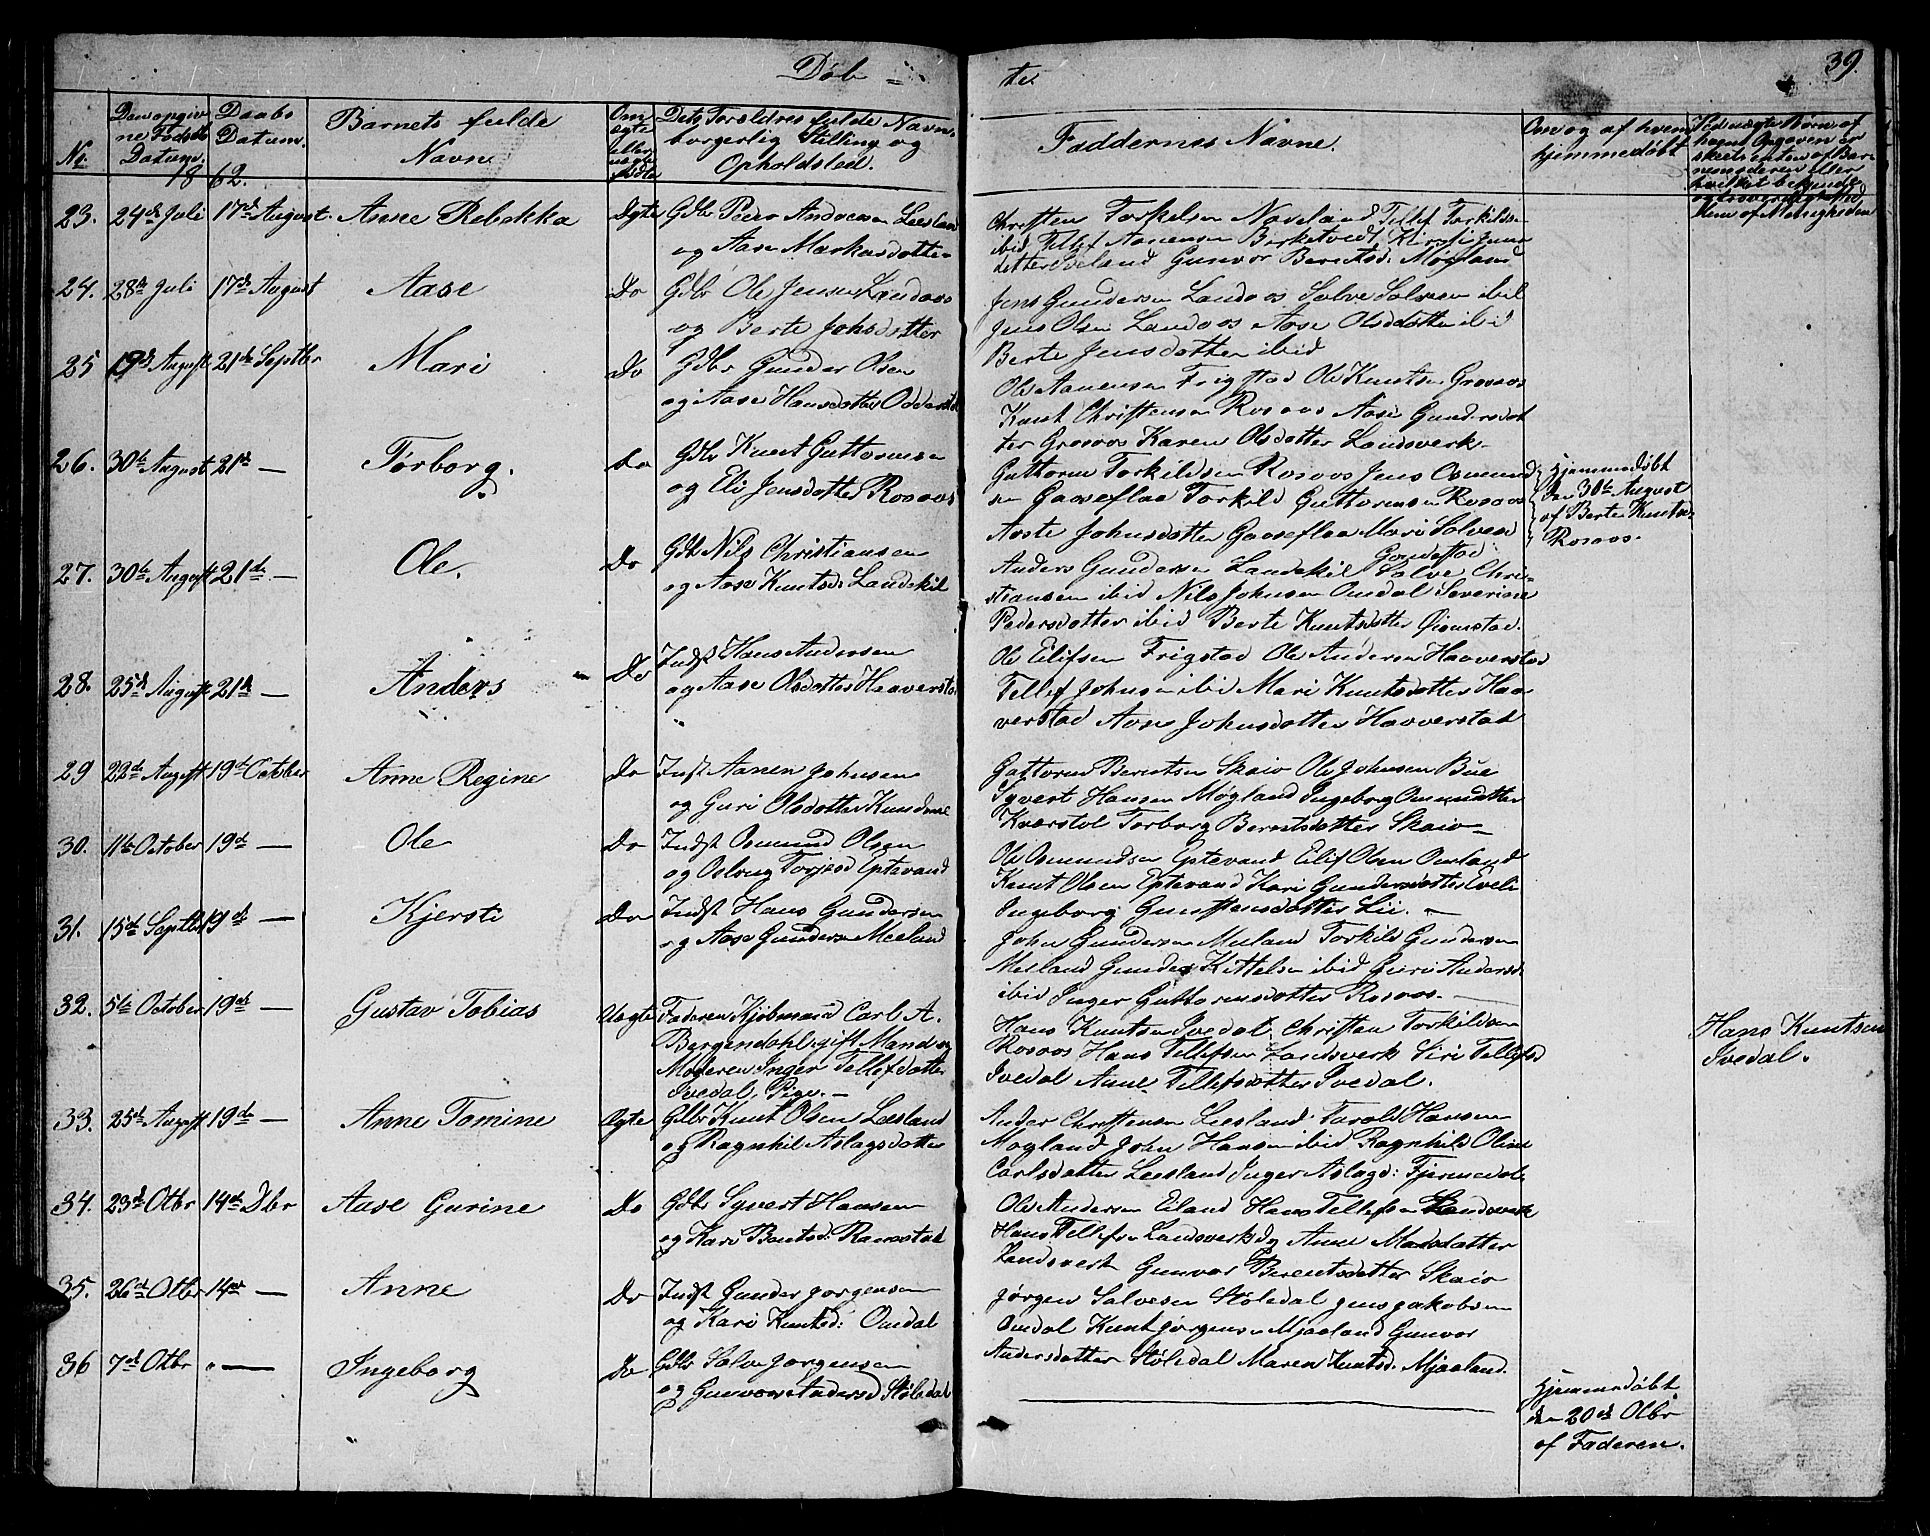 Døb=
te.
39.
No.
Den opgiv
ne Fødsels
Datum.
Daabs
Datum.
Barnets fulde
Navn
Om
ægte
eller
uægte
fødte
Dets Forældres fulde Navn
borgerlig Stilling og
Opholdsted.
Faddernes Navne.
Om og af hvem
hjemmedøbt
Ved uægte Børn af
hvem Opgaven er
skeet enten af Bar-
nemoderen eller
18 62.
23. 24de Juli 17de August. Anne Rebekka Ægte Gdbr Peder Andersen Leeland
og Aase Markusdatter
Christen Torkelsen Naveland, Tellef Torkildsen
ibid, Tellef Aanensen Birketvedt, Kirsti Jens
datter Beland Gunvor Berntsd. Møgland
24. 28de Juli 17de August Aase Do Gdbr Ole Jensen Landaas
og Berte Johsdatter
Jens Gundersen Landaas Salve Salvesen ibid
Jens Olsen Landaas Aase Olsdatter ibid
Berte Jensdatter ibid
25 19de August 21de Septbr Mari Do Gdbr Gunder Olsen
og Aase Hansdatter
Ole Aanensen Frigstad Ole Knutsen Grosaas
Knut Christensen Rosaas Aase Gundersdat
ter Grosaas Karen Olsdatter Landsverk-
26. 30te August 21de — Torborg. Do Gdbr Knut Guttormsen
og Eli Jensdatter Rosaas
Guttorm Torkildsen Rosaas Jens Osmund
sen Gaaseflaa Torkild Guttormsen Rosaas
Aaste Johnsdatter Gaaseflaa Mari Salvesd
Hjemmedøbt
den 30te August
af Berte Knutsd
Rosaas.
27. 30te August 21de — Ole. Do Gdbr Nils Christiansen
og Aase Knutsd: Landekil
Anders Gundersen Landekil Salve Chri-
stiansen ibid Nils Johnsen Omdal Severine
Pedersdatter ibid Berte Knutsdatter
28. 25de August 21de — Anders Do Indst Hans Andersen
og Aase Olsdatter Haaverstad
Ole Eilifsen Frigstad Ole Andersen Haaverstad
Tellef Johnsen ibid Mari Knutsdatter Haa
verstad Aase Johnsdatter Haaverstad
29 22de August 19de October Anne Regine Do Indst Aanen Johnsen
og Guri Olsdatter
Guttorm Berntsen Skaio Ole Johnsen Bue
Syvert Hansen Møgland Ingeborg Omundsdatter
Torborg Berntsdatter Skaio-
30. 11te October 19de — Ole Do Indst Osmund Olsen
og Oslaug Torjesd Eptevand
Ole Osmundsen Eptevand Eilif Olsen Omland
Knut Olsen Eptevand Kari Gundersdatter Eveli
Ingeborg Lii. —
31. 15de Septbr 19de — Kjersti Do Indst Hans Gundersen
og Aase Gundersen Meeland
John Gundersen Meeland Torkild Gundersen
Meeland Gunder Kittelsen ibid Guri Andersd
ibid Inger Guttormsdatter Rosaas. —
32. 5te October 19de — Gustav Tobias Uægte Faderen Kjøbmand Carl A.
Bergendahl, gift Mand og
Moderen Inger Tellefdatter
Ivedal, Pige. —
Hans Knutsen Ivedal, Christen Torkildsen
Rosaas Hans Tellefsen Landsverk Siri Tellefsd
Ivedal Anne Tellefsdatter Ivedal.
Hans Knutsen
Ivedal.
33. 25de August 19de — Anne Tomine Ægte Gdbr Knut Olsen Leesland
og Ragnhil Aslagsdatter
Ander Christensen Leesland. Tarald Hansen
Møgland John Hansen ibid Ragnhild Oline
Carlsdatter Leesland Inger Aslagd: Fjermedal
34. 23de Otbr 14de Dbr Aase Gurine Do Gdbr Syvert Hansen
og Kari Berntsd: Ramsstad
Ole Andersen Eiland Hans Tellefsen Landsverk
Hans Tellefsen Landsverk Anne Madsdatter
Landsverk Gunvor Berentsdatter Skaio
35. 26de Otbr 14de — Anne Do Indst Gunder Jørgensen
og Kari Knutsd: Omdal
Jørgen Salvesen Støledal Jens Jakobsen
Omdal Knut Jørgensen Mjaaland Gunvor
Andersdatter Støledal Maren Knutsd. Mjaaland.
36 7de Otbr „ — Ingeborg Do Gdbr Salve Jørgensen
og Gunvor Andersd Støledal
Hjemmedøbt
den 20de Otbr
af Faderen.